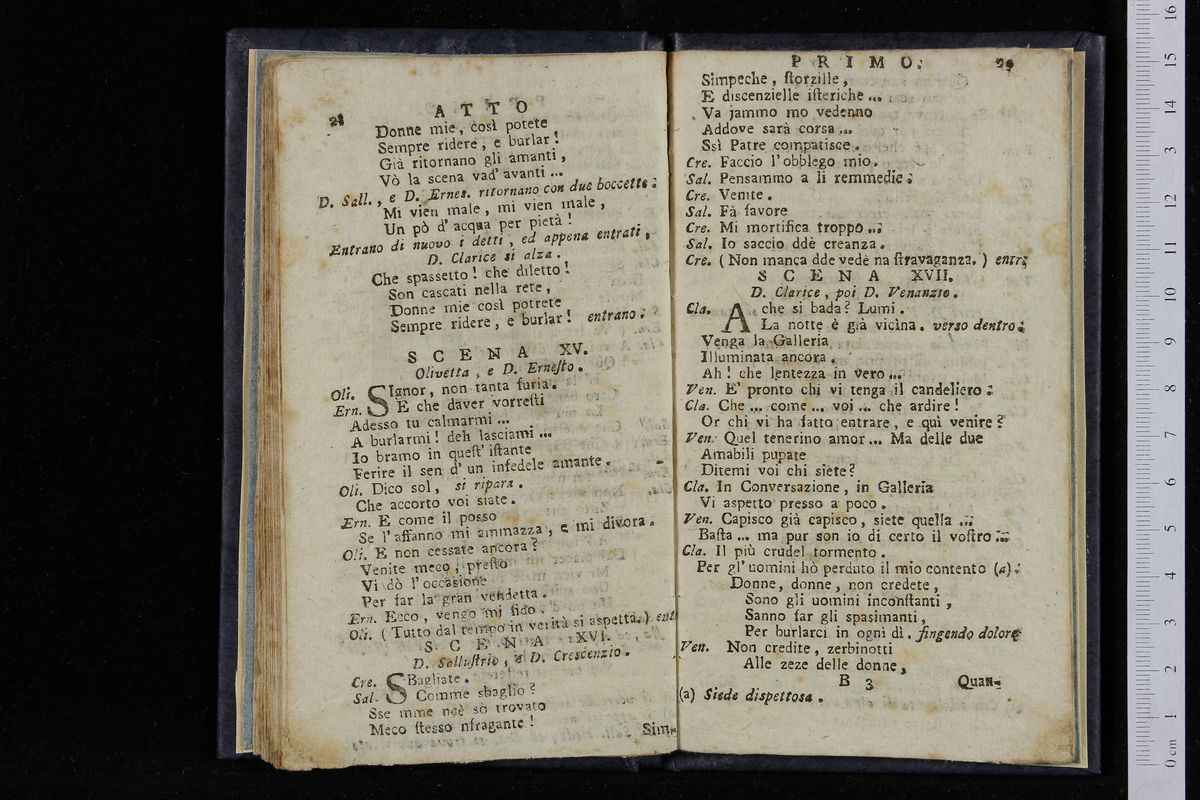 28
A T T O
Donne mie, così potete
Sempre ridere, e burlar!
Già ritornano gli amanti,
Vò la scena vad' avanti ...
D. Sall., e D. Ernes. ritornano con due boccette.
Mi vien male, mi vien male,
Un pò d' acqua per pietà!
Entrano di nuovo i detti, ed appena entrati,
D. Clarice si alza.
Che spassetto! che diletto!
Son cascati nella rete,
Donne mie così potrete
Sempre ridere, e burlar! entrano.
S C E N A XV.
Olivetta, e D. Erneſto.
Oli. SIgnor, non tanta furia.
Ern. E che daver vorreſti
Adesso tu calmarmi ...
A burlarmi! deh lasciami ...
Io bramo in queſt' iſtante
Ferire il sen d' un infedele amante.
Oli. Dico sol, si ripara.
Che accorto voi siate.
Ern. E come il posso
Se l' affanno mi ammazza, e mi divora.
Oli. E non cessate ancora?
Venite meco, preſto
Vi dò l' occasione
Per far la gran vendetta.
Ern. Ecco, vengo mi fido.
Oli. (Tutto dal tempo in verità si aspetta.) ent
S C E N A XVI.
D. Salluſtrio, e D. Crescenzio.
Cre. SBagliate.
Sal. Comme sbaglio?
Sse mme ncè sò trovato
Meco ſtesso nfragante!
Sim-
P R I M O.
29
Simpeche, ſtorzille,
E discenzielle iſteriche ...
Va jammo mo vedenno
Addove sarà corsa ...
Ssì Patre compatisce.
Cre. Faccio l' obblego mio.
Sal. Pensammo a li remmedie.
Cre. Venite.
Sal. Fà favore
Cre. Mi mortifica troppo ...
Sal. Io saccio ddè creanza.
Cre. (Non manca dde vedè na ſtravaganza.) entr.
S C E N A XVII.
D. Clarice, poi D. Venanzio.
Cla. A che si bada? Lumi.
La notte è già vicina. verso dentro.
Venga la Galleria
Illuminata ancora.
Ah! che lentezza in vero ...
Ven. E' pronto chi vi tenga il candeliero.
Cla. Che ... come ... voi ... che ardire!
Or chi vi ha fatto entrare, e quì venire?
Ven. Quel tenerino amor ... Ma delle due
Amabili pupate
Ditemi voi chi siete?
Cla. In Conversazione, in Galleria
Vi aspetto presso a poco.
Ven. Capisco già capisco, siete quella ...
Baſta ... ma pur son io di certo il voſtro ...
Cla. Il più crudel tormento.
Per gl' uomini hò perduto il mio contento (a).
Donne, donne, non credete,
Sono gli uomini inconſtanti,
Sanno far gli spasimanti,
Per burlarci in ogni dì. fingendo dolore
Ven. Non credite, zerbinotti
Alle zeze delle donne,
B 3 Quan-
(a) Siede dispettosa.
0 cm 1 2 3 4 5 6 7 8 9 10 11 12 13 14 15 16